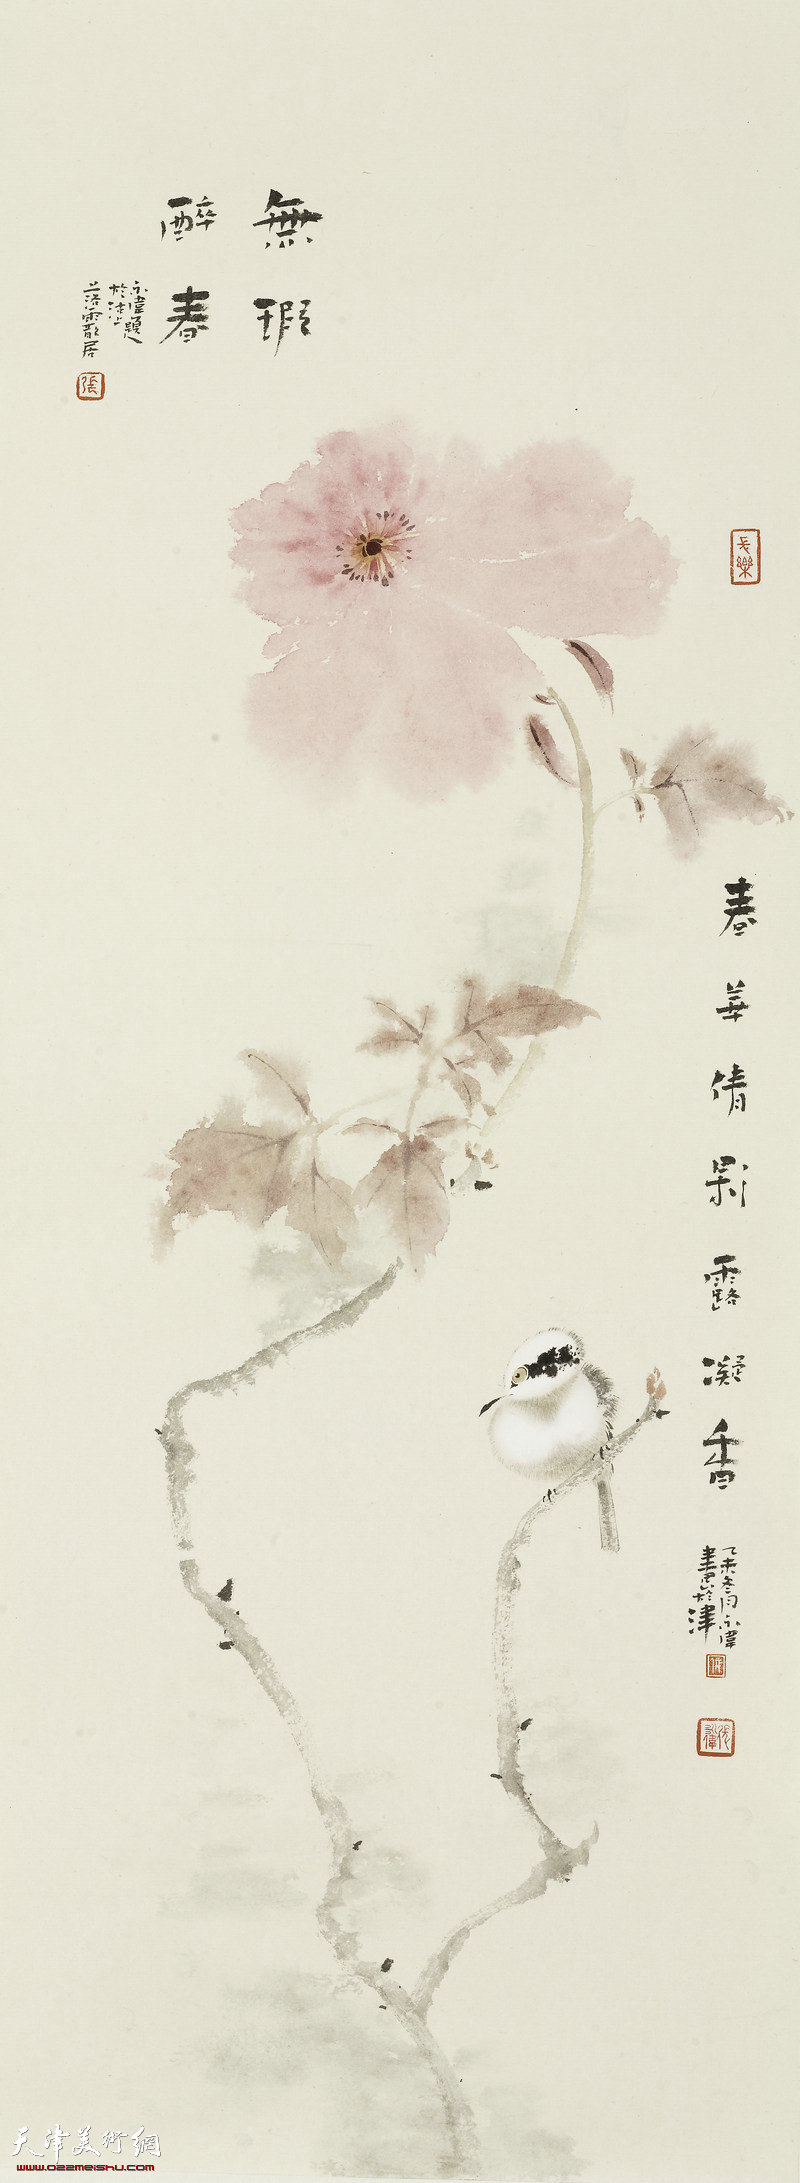 無瑕
醉春
永偉題
於津上
落霞居
張
長樂
春華倩影露凝香
乙未冬月永偉
畫於津
張
永偉
天津美術網
www.022meishu.com